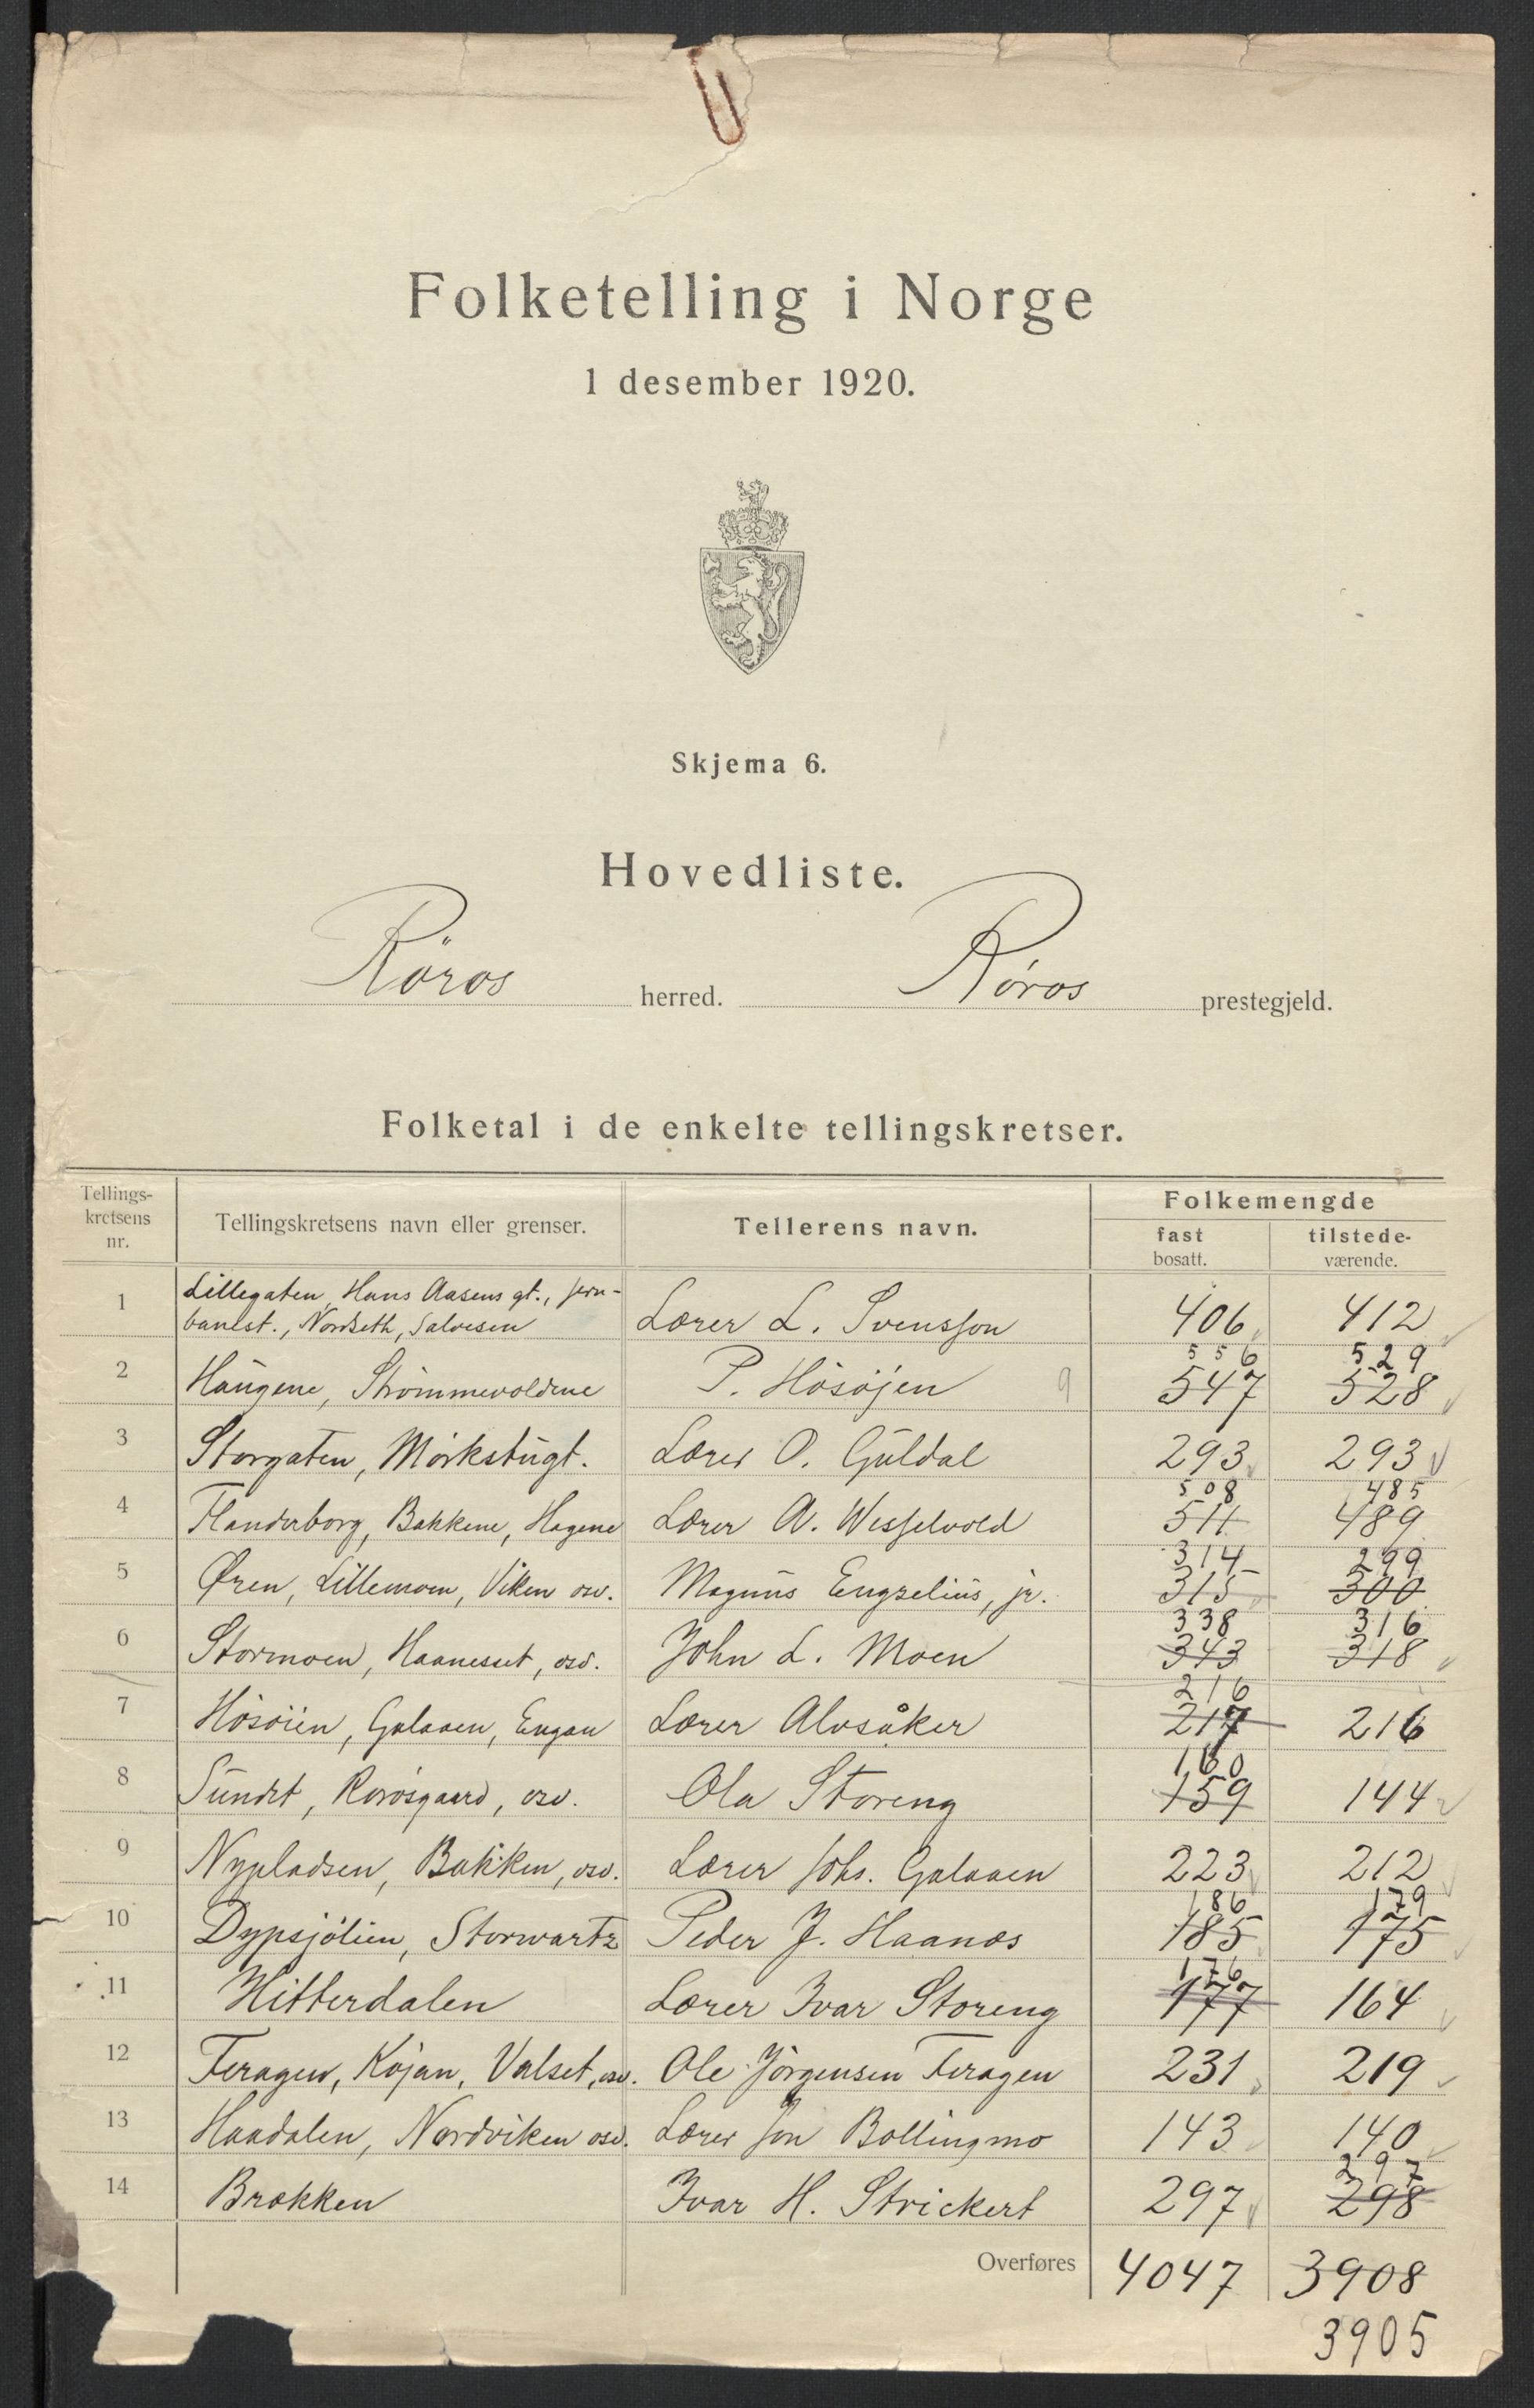 Folketelling i Norge
1 desember 1920.
Skjema 6.
Hovedliste.
Röros herred. Røros prestegjeld.
Folketal i de enkelte tellingskretser.
Tellings-
kretsens
nr.
Tellingskretsens navn eller grenser.
Tellerens navn.
Folkemengde
fast
bosatt.
tilstede-
værende.
1 Lillegaten, Hans Aasens gt., jern-
banest., Nordseth, Salvesen Lærer L. Svensson 406 412
556 529
2 Haugene, Strømmevoldene P. Hösöjen 9 547 528
3 Storgaten, Mörkstugt. Lærer O. Guldal 293 293
508 485
4 Flanderborg, Bakkene, Hagene Lærer A. Wesselvold 511 489
314 299
5 Øren, Lillemoen, Viken osv. Magnus Engzelius, jr. 315 300
338 316
6 Stormoen, Haanesset, osv. John L. Moen 343 318
216
7 Hösöien, Galaaen, Engan Lærer Alvsåker 217 216
160
8 Sundt, Rørosgaard, osv. Ola Storeng 159 144
9 Nypladsen, Bakken, osv. Lærer Johs. Galaaen 223 212
186 179
10 Dypsjölien, Storwartz Peder J. Haanæs 185 175
176
11 Hitterdalen Lærer Ivar Storeng 177 164
12 Feragen, Kojan, Valset, osv. Ole Jörgensen Feragen 231 219
13 Haadalen, Nordviken osv. Lærer Jon Bollingmo 143 140
297
14 Brækken Ivar H. Strickert 297 298
Overføres 4047 3908
3905